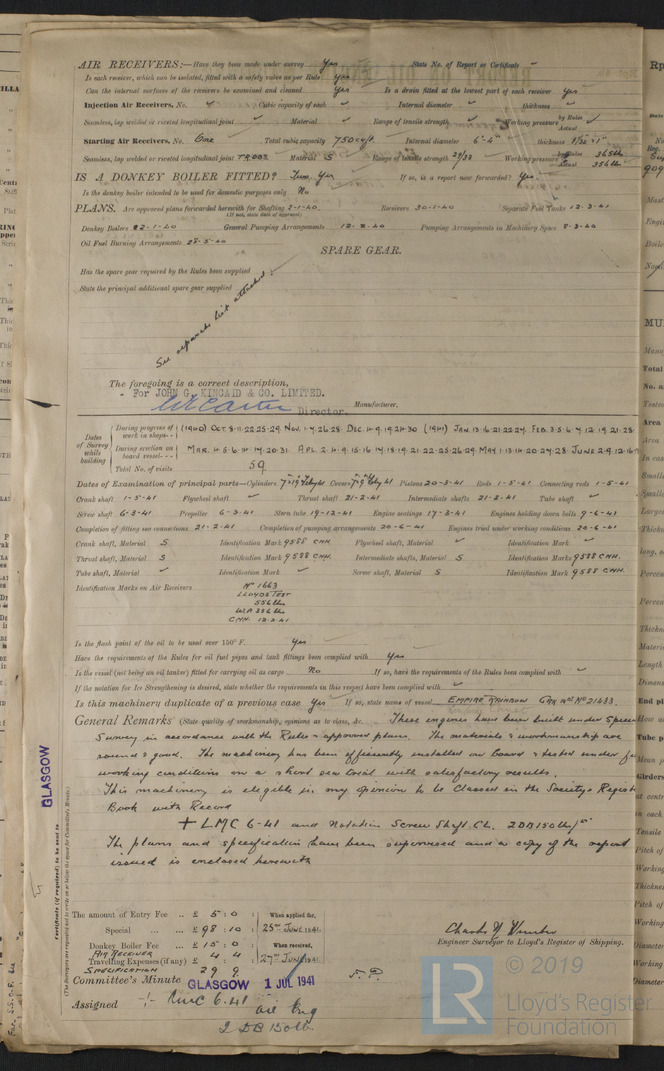 AIR RECEIVERS:— Have they been made under survey Yes State No. of Report or Certificate
Is each receiver, which can be isolated, fitted with a safety valve as per Rule Yes
Can the internal surfaces of the receivers be examined and cleaned Yes Is a drain fitted at the lowest part of each receiver Yes
Injection Air Receivers, No. ✓ Cubic capacity of each ✓ Internal diameter ✓ thickness ✓
Seamless, lap welded or riveted longitudinal joint ✓ Material ✓ Range of tensile strength ✓ Working pressure by Rules ✓ Actual
Starting Air Receivers, No. One Total cubic capacity 750 cu ft Internal diameter 6'-4" thickness
Seamless, lap welded or riveted longitudinal joint Material S Range of tensile strength Working pressure by Rules 365 lb Actual 356 lb
IS A DONKEY BOILER FITTED? Yes If so, is a report now forwarded? Yes
Is the donkey boiler intended to be used for domestic purposes only No
PLANS. Are approved plans forwarded herewith for Shafting 2-1-40 Receivers 30-1-40 Separate Fuel Tanks 12-3-41
(If not, state date of approval)
Donkey Boilers 22-1-40 General Pumping Arrangements 12-2-40 Pumping Arrangements in Machinery Space 8-3-40
Oil Fuel Burning Arrangements 28-5-40
SPARE GEAR.
Has the spare gear required by the Rules been supplied
State the principal additional spare gear supplied
See separate list attached.
The foregoing is a correct description,
For JOHN G. KINCAID & CO. LIMITED.
Director. Manufacturer.
Dates of Survey while building
During progress of work in shops - - (1940) Oct 8.11.22.25.29 Nov. 1.4.26.28 Dec. 4.9.19.24.30 (1941) Jan. 13.16.21.22.24. Feb. 3.5.6.7.12.19.21.28
During erection on board vessel - - - Mar. 4.5.6.14.17.20.31 Apl. 2.4.9.15.16.14.18.19.21.22.25.26.29 May 1.13.14.20.24.28 June 2.9.12.16
Total No. of visits 59
Dates of Examination of principal parts—Cylinders Covers Pistons 20-3-41 Rods 1-5-41 Connecting rods 1-5-41
Crank shaft 1-5-41 Flywheel shaft ✓ Thrust shaft 21-2-41 Intermediate shafts 21-2-41 Tube shaft ✓
Screw shaft 6-3-41 Propeller 6-3-41 Stern tube 19-12-41 Engine seatings 17-3-41 Engines holding down bolts 9-6-41
Completion of fitting sea connections 21-2-41 Completion of pumping arrangements 20-6-41 Engines tried under working conditions 20-6-41
Crank shaft, Material S Identification Mark 9588 CHH. Flywheel shaft, Material ✓ Identification Mark ✓
Thrust shaft, Material S Identification Mark 9588 CHH. Intermediate shafts, Material S Identification Marks 9588 CHH.
Tube shaft, Material ✓ Identification Mark ✓ Screw shaft, Material S Identification Mark 9588 CHH.
Identification Marks on Air Receivers No 1663
LLOYDS TEST
556 lb
W.P. 356 lb
CHH 12-2-41
Is the flash point of the oil to be used over 150° F. Yes
Have the requirements of the Rules for oil fuel pipes and tank fittings been complied with Yes
Is the vessel (not being an oil tanker) fitted for carrying oil as cargo No If so, have the requirements of the Rules been complied with ✓
If the notation for Ice Strengthening is desired, state whether the requirements in this respect have been complied with ✓
Is this machinery duplicate of a previous case Yes If so, state name of vessel EMPIRE RAINBOW GRK Rpt No 21433.
General Remarks (State quality of workmanship, opinions as to class, &c. These engines have been built under Special
Survey in accordance with the Rules & approved plans. The materials & workmanship are
sound & good. The machinery has been efficiently installed on board & tested under full
working conditions on a short sea trial with satisfactory results.
This machinery is eligible in my opinion to be Classed in the Society's Register
Book with Record
+ LMC 6-41 and Notation Screw Shaft CL. 2DB 150 lb
The plans and specification have been supervised and a copy of the report
issued is enclosed herewith
GLASGOW
Certificate (if required) to be sent to
(The Surveyors are requested not to write on or below the space for Committee's Minute.)
The amount of Entry Fee .. £ 5 : 0 : When applied for,
Special ... £ 98 : 10 : 25th JUNE 1941
Donkey Boiler Fee ... £ 15 : 0 : When received,
AIR RECEIVER 4 : 4
Travelling Expenses (if any) £ : : 27th JUNE 1941
SPECIFICATION 29 . 9
Engineer Surveyor to Lloyd's Register of Shipping.
Committee's Minute GLASGOW 1 JUL 1941
Assigned + LMC 6.41
Oil Eng
2 DB 150 lb.
© 2019
LR
Lloyd's Register
Foundation